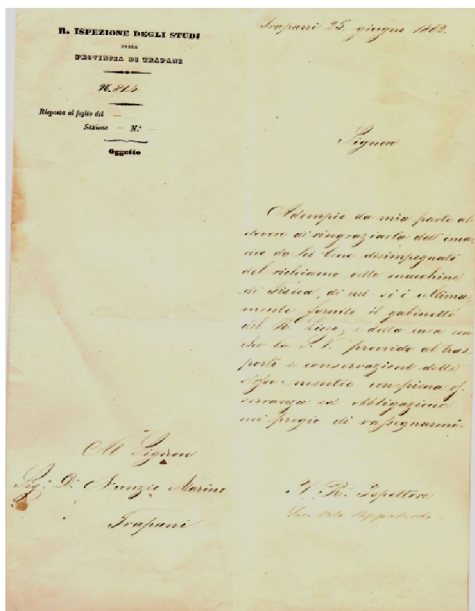 R. ISPEZIONE DEGLI STUDJ
DELLA
PROVINCIA DI TRAPANI
N. 814
Risposta al foglio del —
Sezione — N.° —
Oggetto
Trapani 25. giugno 1862.
Signore
Adempio da mia parte al
dovere di ringraziarla dell'inca
rico da lei bene disimpegnato
del richiamo delle macchine
di Fisica, di cui si è ultima
mente fornito il gabinetto
del R. Liceo, e della cura con
che la S. V. provvide al tras
porto e conservazione delle
mentre con piena os
servanza ed obbligazione
mi pregio di rassegnarmi.
Al Signore
Sig. D. Nunzio Marino
Trapani
Il R. Ispettore